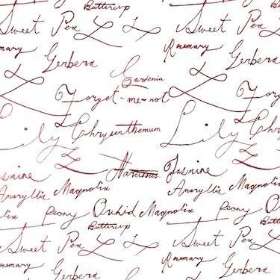 Buttercup
Sweet Pea Sweet Pea
Rosemary
Gerbera Gerbera
Gardenia
Forget-me-not
Lily Chrysanthemum Lily
Narcissus
Jasmine Jasmine
Amaryllis Magnolia Amaryllis Magnolia
Peony Orchid Magnolia Peony
Buttercup
Sweet Pea Sweet Pea
Rosemary
Gerbera Gerbera